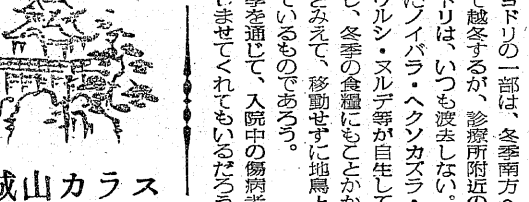 ヨドリの一部は、冬季南方へ
て越冬するが、診療所附近の
ドリは、いつも渡去しない。
ノイバラ・ヘクソカズラ・
ウルシ・ヌルデ等が自生して
し、冬季の食糧にもことかか
とみえて、移動せずに地鳥と
ているものであろう。
季を通じて、入院中の傷病者
しませてくれてもいるだろう
城山カラス